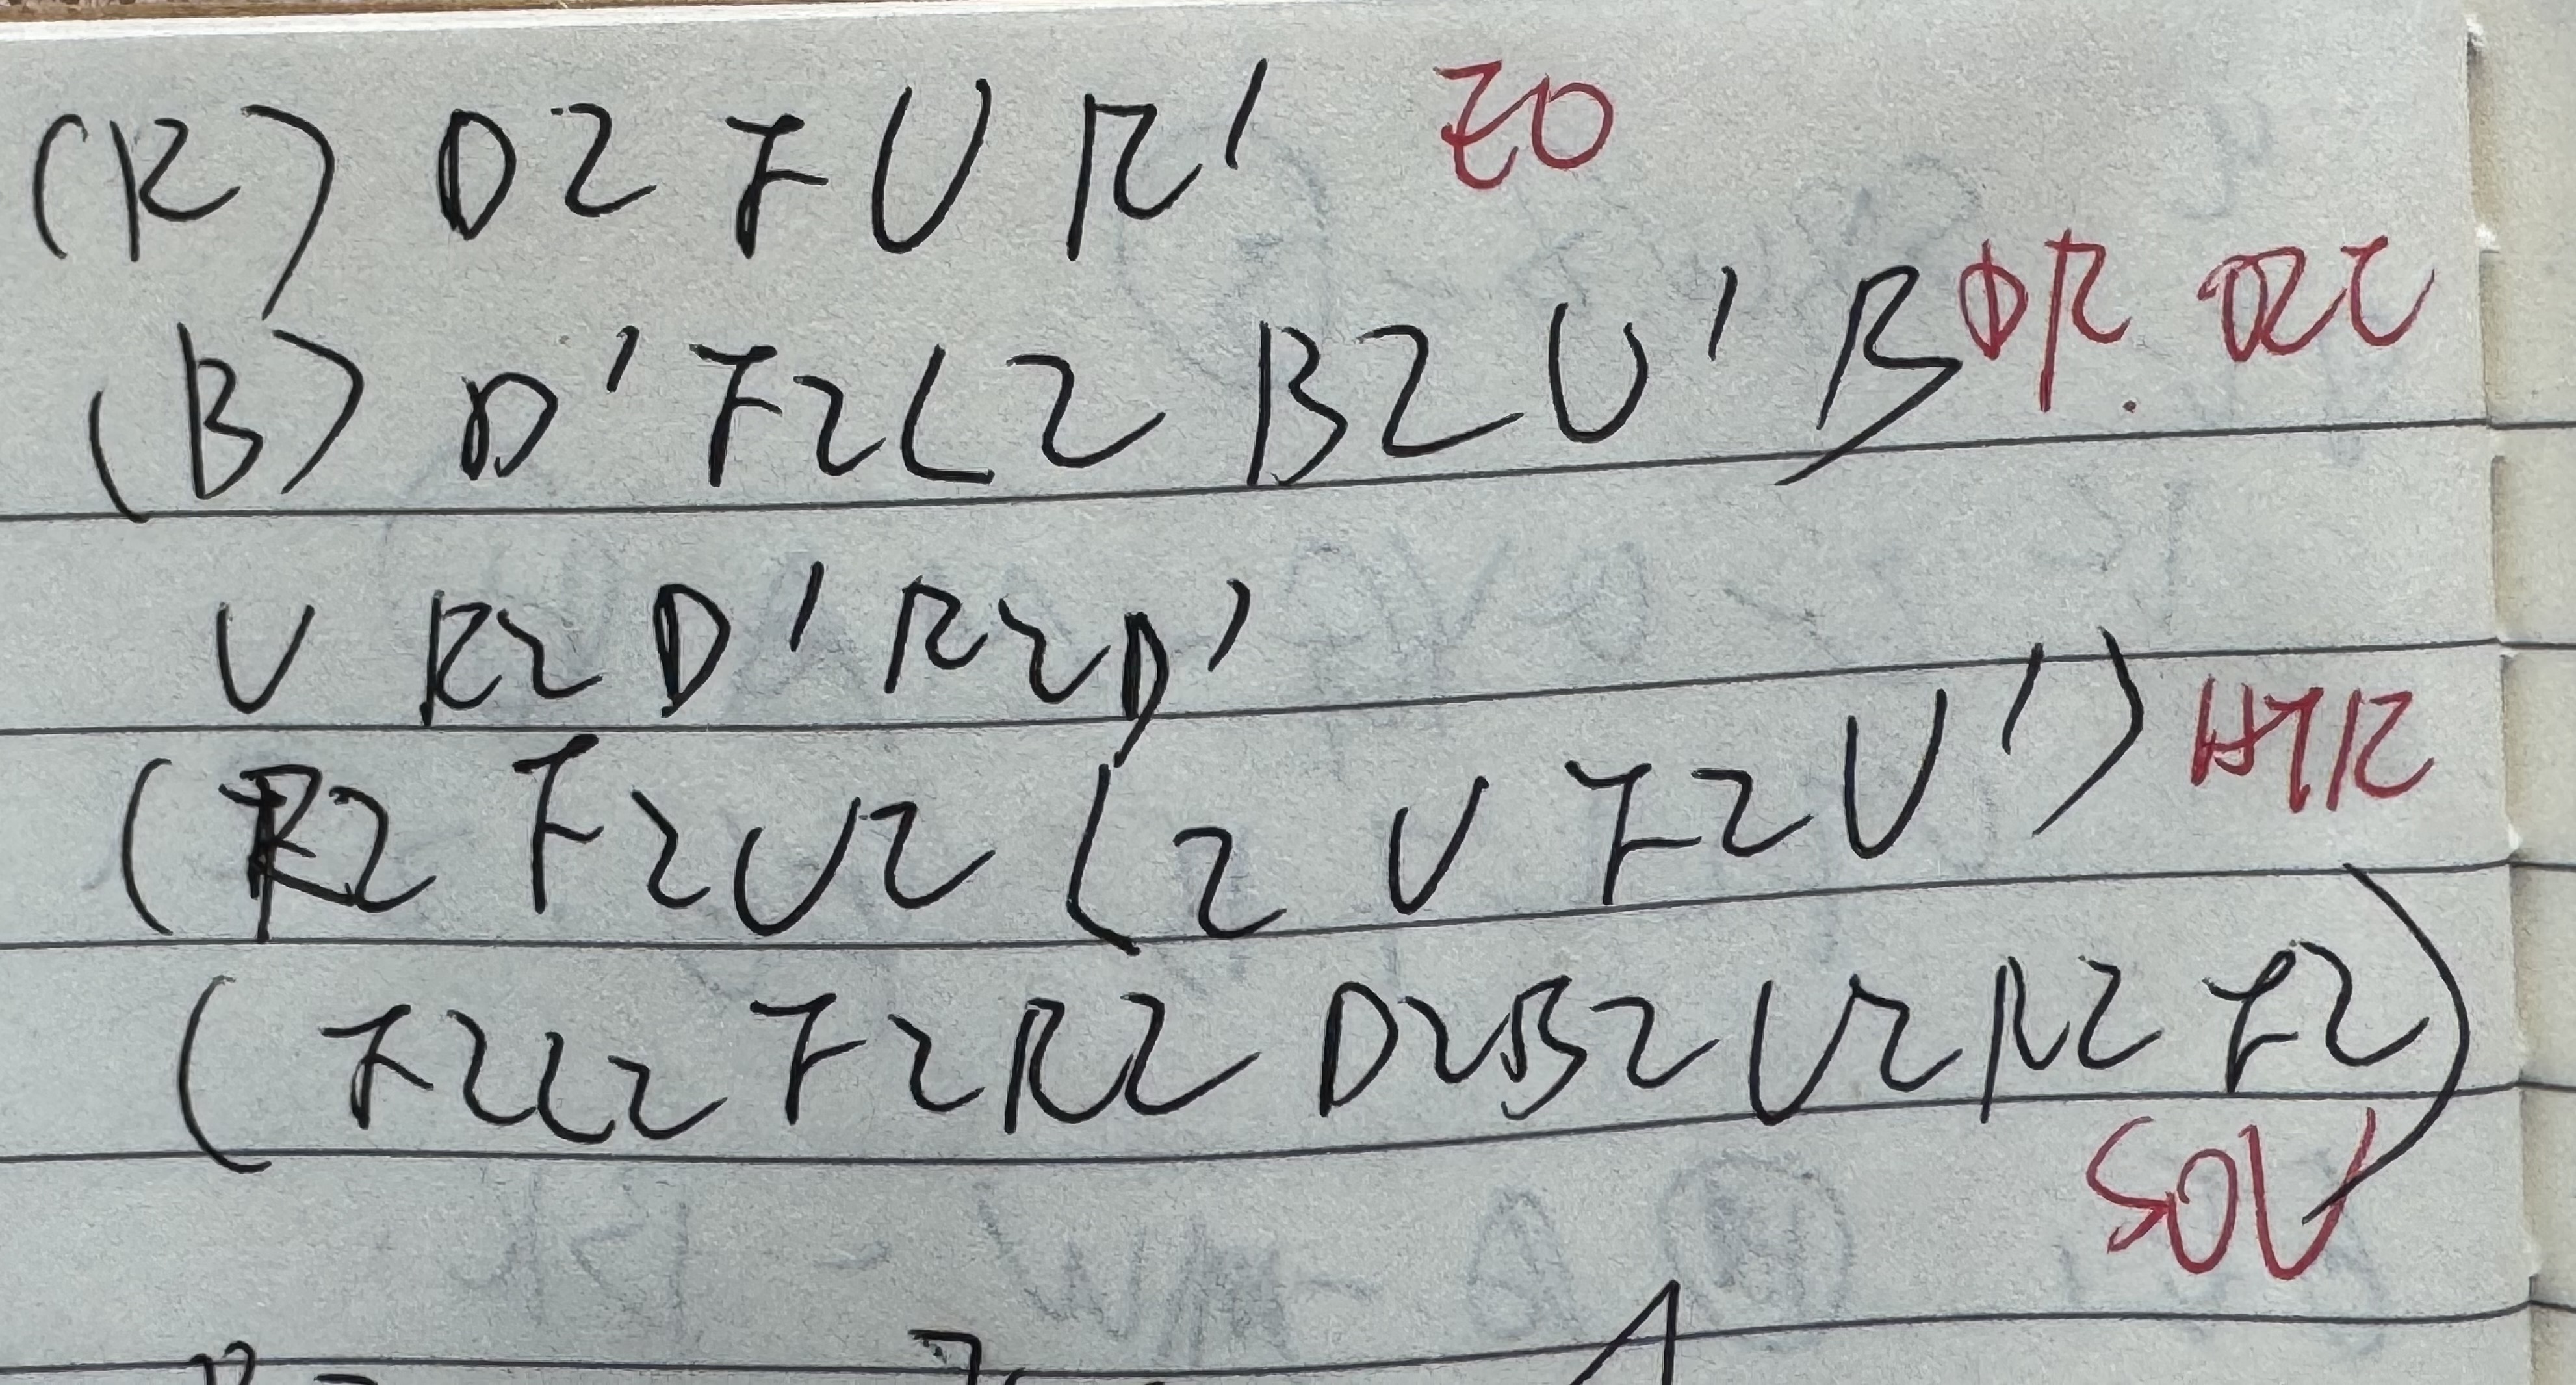 (R) D2 F U R' EO
(B) D' F2 L2 B2 U' B DR.
U R2 D' R2 D'
(R2 F2 U2 L2 U F2 U') HTR
(F2 L2 F2 R2 D2 B2 U2 R2 F2)
SOLV